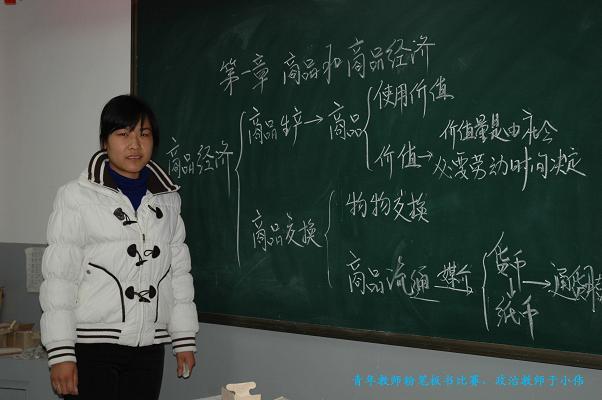 第一章 商品和商品经济
商品经济
商品生产→商品
使用价值
价值→
价值量是由社会
必要劳动时间决定
商品交换
物物交换
商品流通 媒介
货币
纸币
→通货膨
青年教师粉笔板书比赛，政治教师于小伟